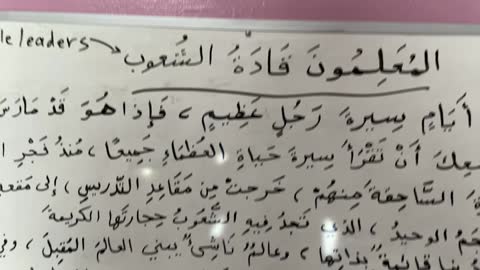 le leaders
المُعَلِمُونَ قَادَةُ الشُعوب
أَيَامٍ بِسِيرَةِ رَجُلٍ عَظِيمٍ ، فَإِذَا هُوَ قَدْ مَارَسَ
أَنْ تَقْرَأَ سِيرَةَ حَيَاةِ العُظَمَاءِ جَمِيعًا ، مُنْذُ فَجْرِ
السَّاحِقَةَ مِنْهُمْ ، خَرَجَتْ مِن مَقَاعِدِ التَّدْرِيسِ ، إلى مَقَعِدِ
الوحيدُ ، الذي تَجِدُ فِيهِ الشُّعُوبُ حِجارَتَها الكَرِيمَةَ
قَائِمَةٌ بِذَاتِها ، وعَالَمٌ نَاشِئٌ يبني العالمَ المُقبِلَ ، وفي